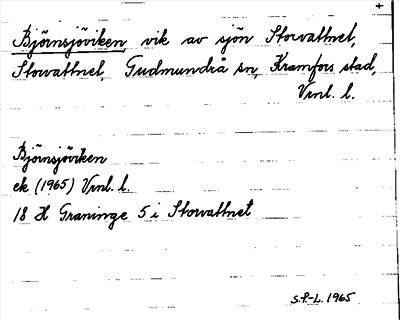 +
Björnsjöviken, vik av sjön Storvattnet,
Storvattnet, Gudmundrå sn, Kramfors stad,
Vrnl. l.
Björnsjöviken
ek (1965) Vrnl. l.
18 H Graninge 5 i Storvattnet
S.P-L. 1965